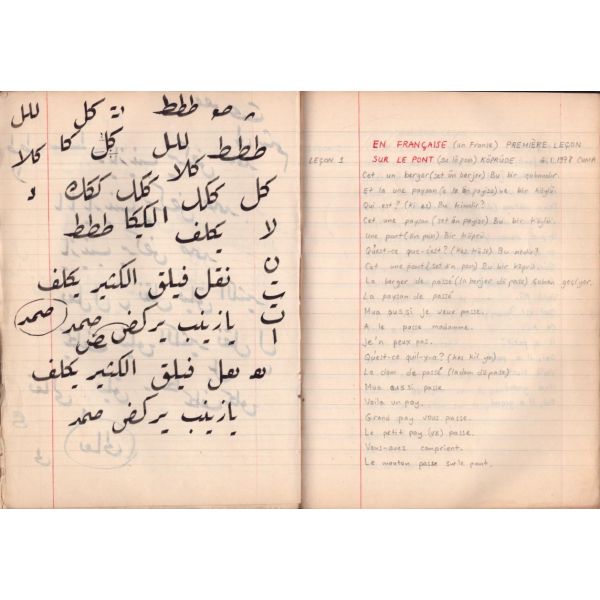 ططط كل للل
ططط للل كل كا كلا
كل ككل كلا ككك
لا يكلف الكيكا ططط
نقل فيلق الكثير يكلف
يازينب يركض صمد صمد
نقل فيلق الكثير يكلف
يازينب يركض صمد
تعالى
EN FRANÇAISE (an Franse) PREMIÈRE LEÇON
LEÇON 1 SUR LE PONT (sü lö pon) KÖPRÜDE 6.1.1978 CUMA
Cet un berger (set ön berjer) Bu bir çobandır.
Et la une paysan (e la ön peyiza) ve bir köylü.
Qui est? (ki es) Bu kimdir?
Cet une paysan (set ön peyizan) Bu bir köylü.
Une pont (ön pon) Bir köprü
Qu'est-ce que-c'est? (Kes köse) Bu nedir?
Cet une pont (set ön pon) Bu bir köprü
La berger de passé (la berjer dö pase) Çoban geçiyor.
La paysan de passé
Mua aussi je veux passe.
A le passe madamme.
Je'n peux pas.
Qu'est-ce quil-y-a? (Kes kil ya)
La dam de passé (la dam dö pase)
Mua aussi passe.
Voila un pay.
Grand pay vous passe.
Le petit pay (ve) passe.
Vous-avez comprient.
Le mouton passe sur le pont.